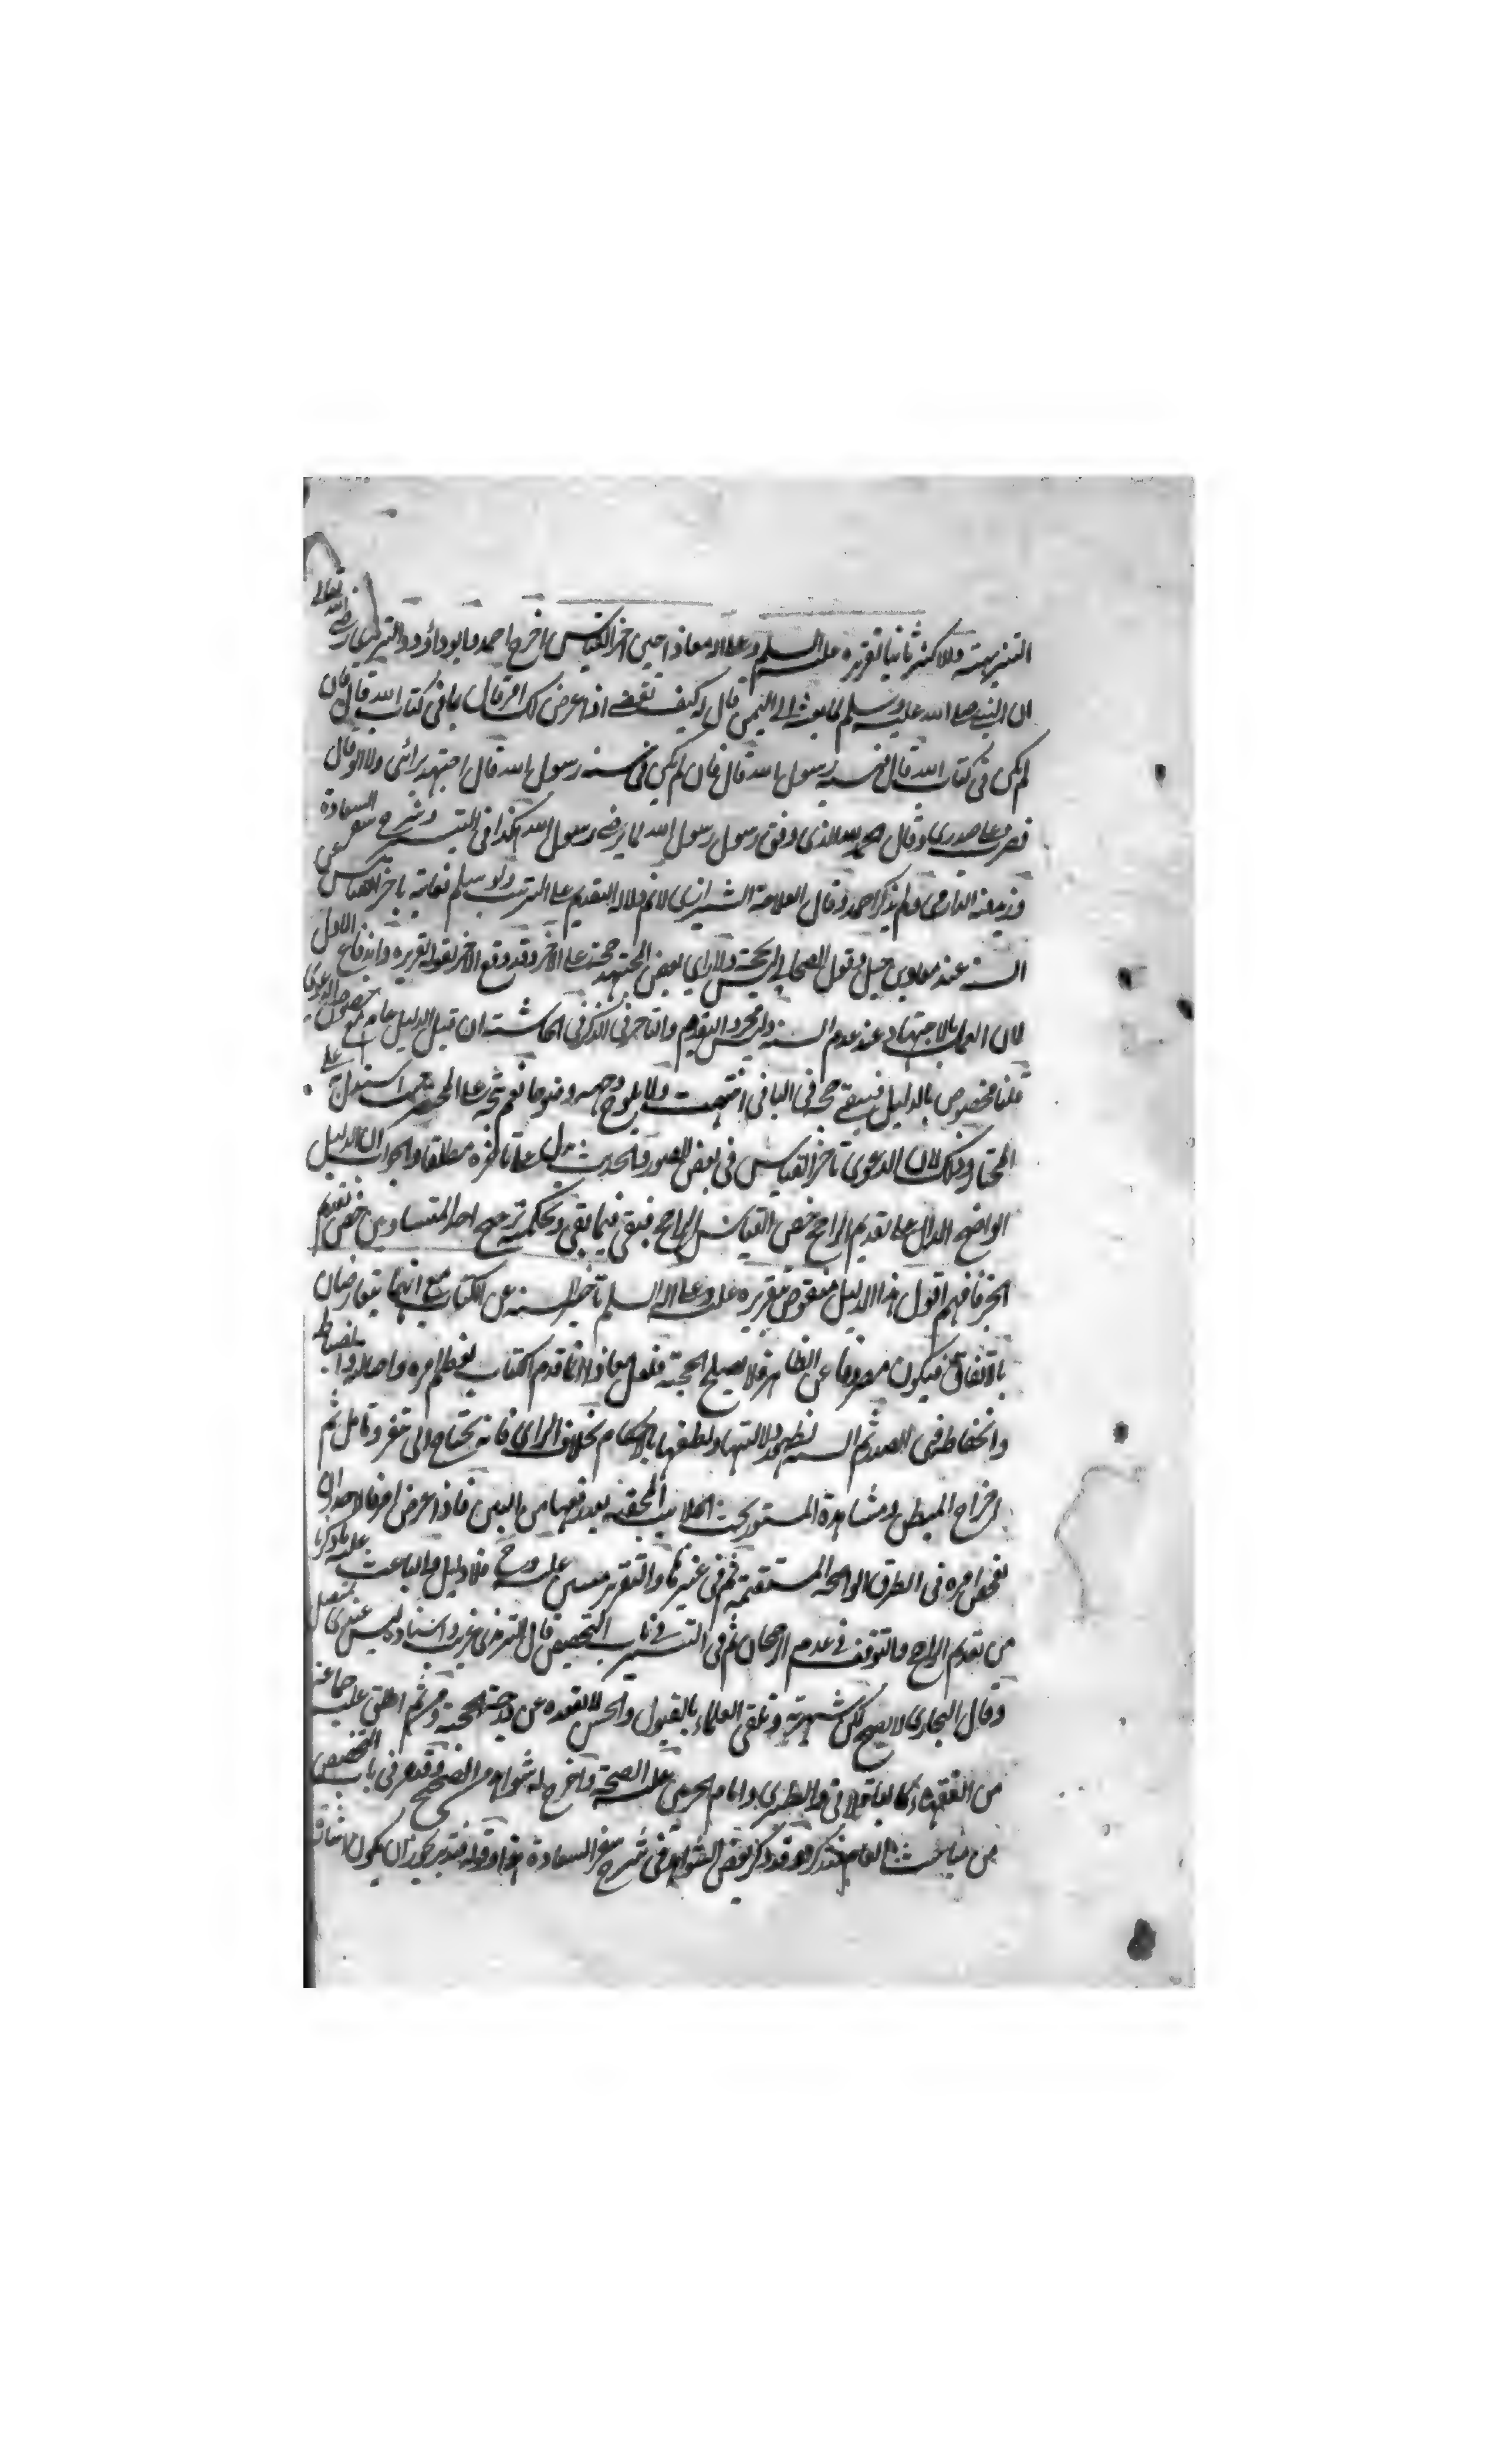 التنزيهية وللاكثر ثانيا تقريره عليه السلم وعلى اله معاذا حين اخر القياس اخرج احمد وابوداؤد والترمذي رضي الله تعالى
ان النبي صلى الله عليه وسلم لما بعثه الى اليمن قال له كيف تقضي اذا عرض لك امر قال بما في كتاب الله قال فان
لم يكن في كتاب الله قال فبسنة رسول الله قال فان لم يكن في سنة رسول الله قال اجتهد برائي ولا الو قال
فضرب على صدري وقال الحمد لله الذي وفق رسول رسول الله لما يرضى رسول الله كذا في التيسير وشرح سفر السعادة
وقال العلامة الشيرازي لانم دلالة التقديم على الترتيب ولو سلم فغايته تاخر القياس عن
السنة عند معاذ بن جبل وقول الصحابي ليس بحجة ولا راي بعض المجتهد حجة على الاخر وقد وقع الاخر لقوله تقريره واندفاع الاول
لان العمل بالاجتهاد عند عدم السنة ليس مجرد التقديم والتاخر في الذكر في الحاشية ان قيل الدليل عام مع خصوص الدعوى
قلنا مخصوص بالدليل فيبقى حجة في الباقي انتهت ولا يلوح وجهه وضوحا نعم يتجه على المختصر حيث استدل على
المختار وذلك لان الدعوى تاخر القياس في بعض الصور والحديث يدل على تاخره مطلقا والجواب ان الدليل
الواضح الدال على تقديم الراجح خص القياس الراجح فبقي فيما بقي وتحكمية ترجيح احد المتساويين خص تقديم
الخبر فافهم اقول هذا الدليل منقوض بتقريره عليه وعلى اله السلم تاخير السنة عن الكتاب مع انهما يتعارضان
بالاتفاق فيكون مصروفا عن الظاهر فلا يصلح للحجية فلعل معاذا انما قدم الكتاب لعظم امره واصالته وانضباطه
وانحفاظه في الصدر ثم السنة لظهور دلالتها ولطفها بالاحكام بخلاف الراي فانه يحتاج الى تفقر وتامل ثم
اخراج المبطل ومشاهدة المستور تحت الجلابيب المحققة بعد رفعها من البين فاذا عرض امر فالاحد ان
يفحص امره في الطرق الواضحة المستقيمة ثم في غيرها والتقرير مبني عليه وح فلا دليل والباعث عليه ما ذكرنا
من تقديم الراجح والتوقف في عدم الرجحان ثم في التيسير في باب التخصيص قال الترمذي غريب واسناده ليس عندي بمتصل
وقال البخاري لا يصح لكن شهرته وتلقي العلماء بالقبول والحسن لا تقعده عن درجة الحجية ومن ثم اطلق عليه جماعة
من الفقهاء كالباقلاني والطبري وامام الحرمين عليه الصحة واخرج له شواهد الصحيح وقد مر في باب التخصيص
من مباحث العام فتذكر وقد ذكر بعض الشواهد في شرح سفر السعادة